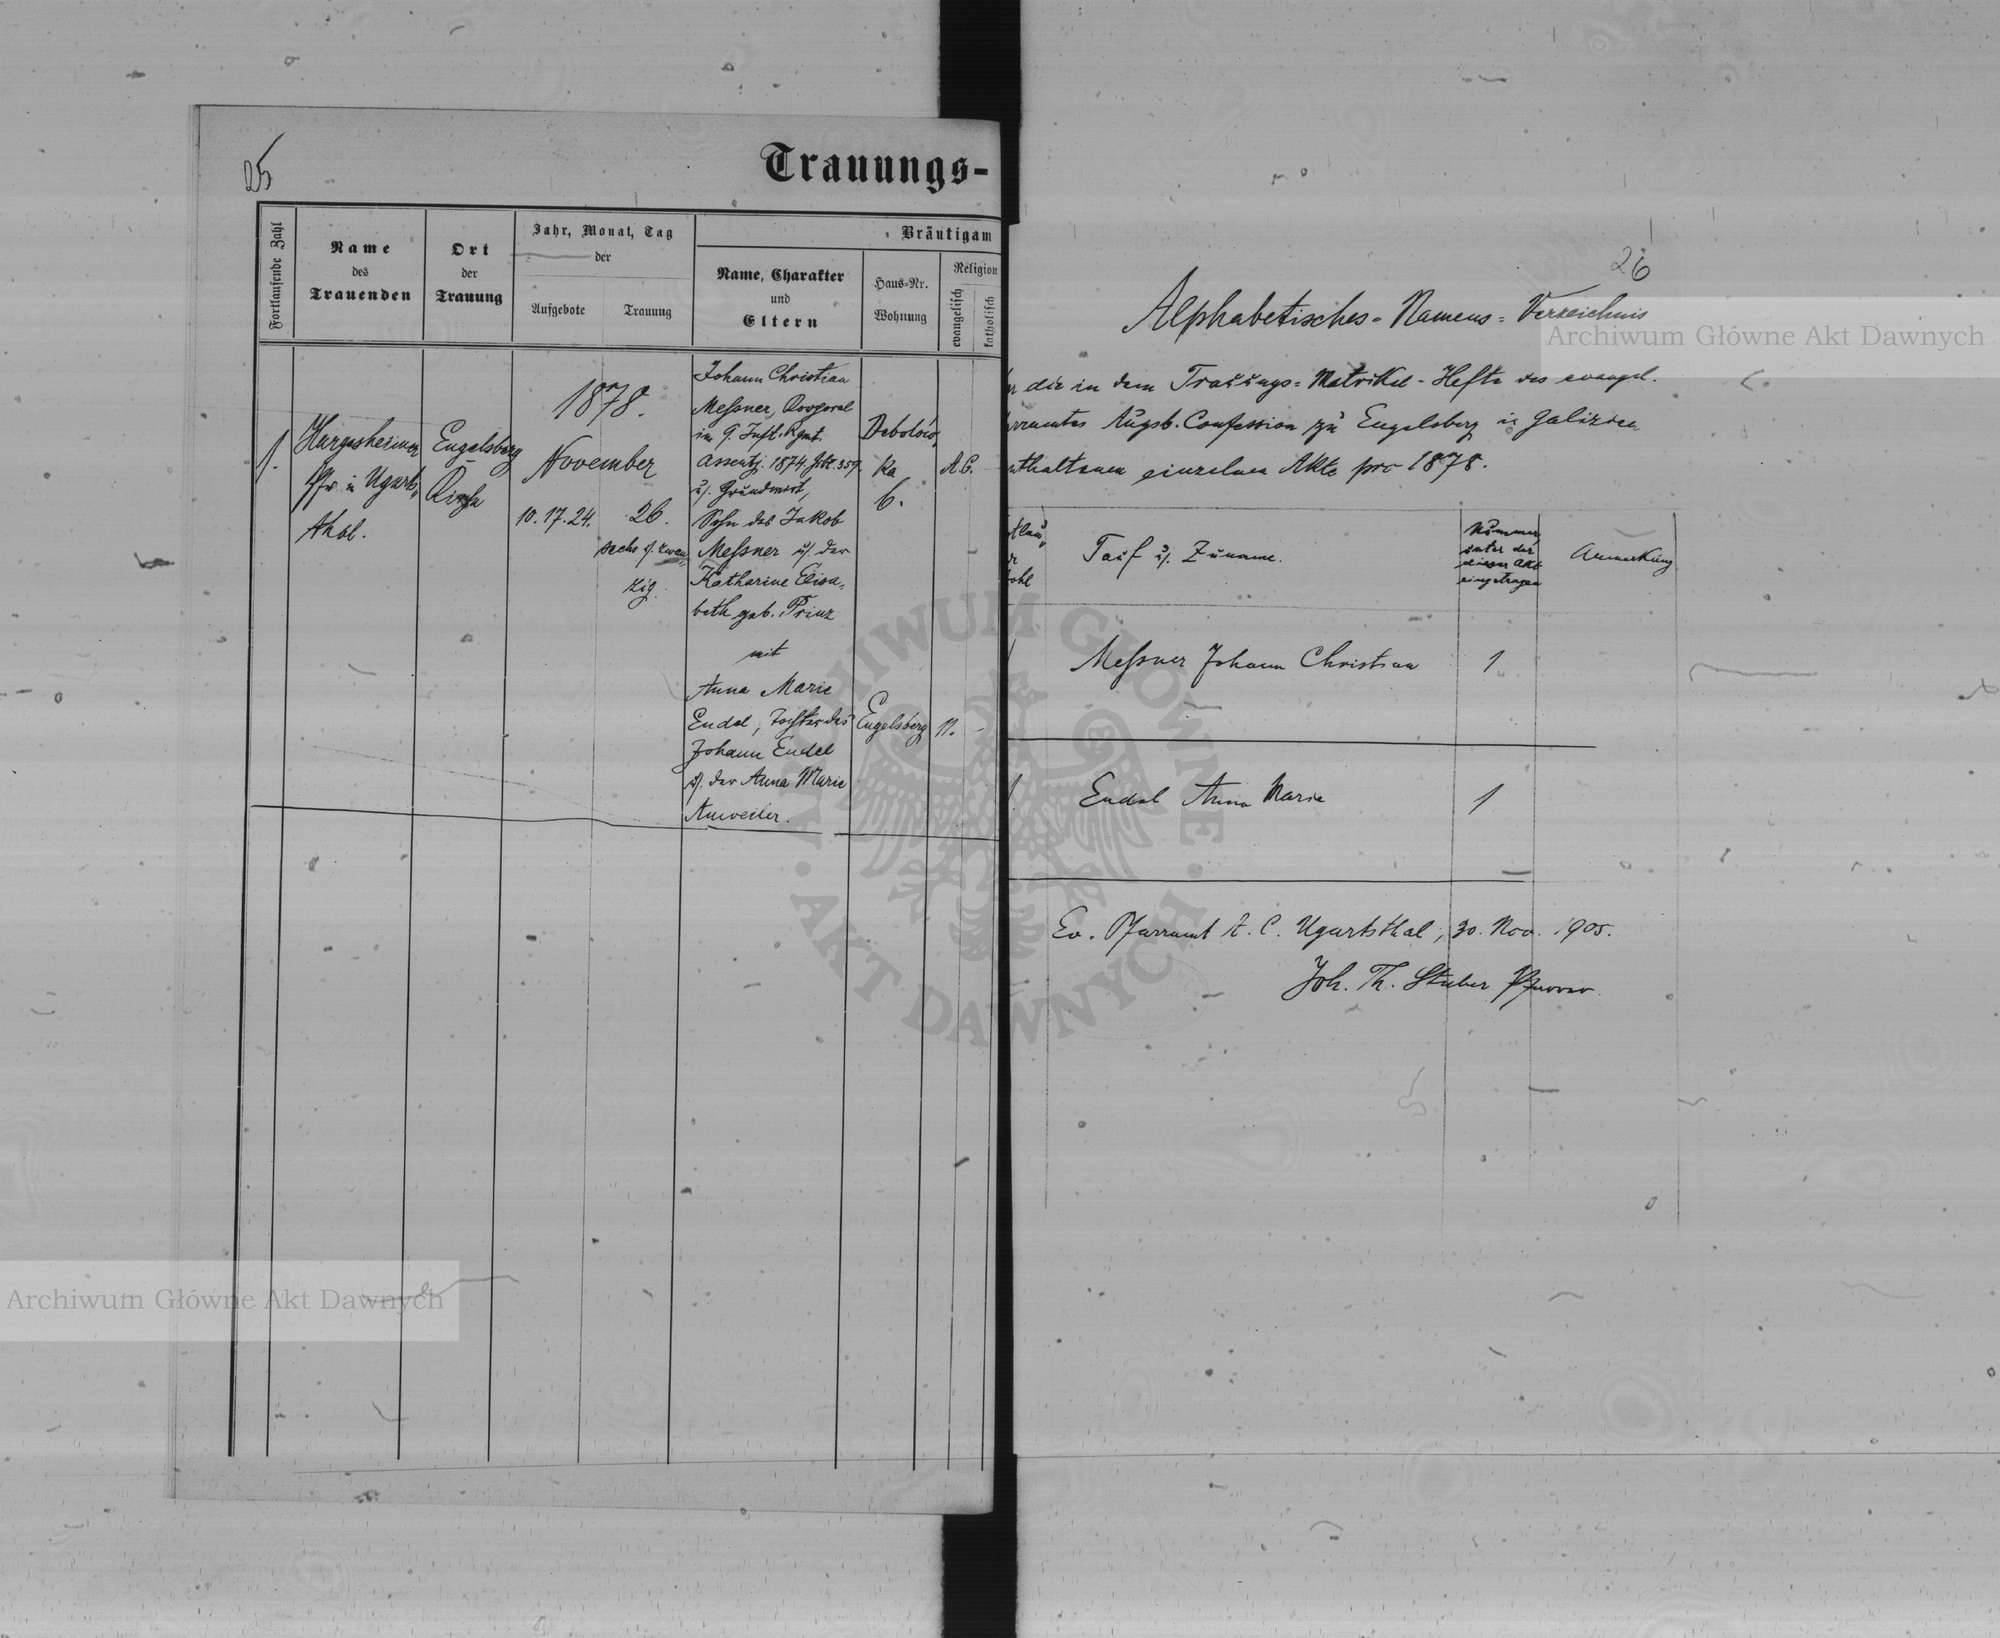 25
Trauungs-
Fortlaufende Zahl
Name
des
Trauenden
Ort
der
Trauung
Jahr, Monat, Tag
der
Aufgebote
Trauung
Bräutigam
Name, Charakter
und
Eltern
Haus-Nr.
Wohnung
Religion
evangelisch
katholisch
1.
Hargesheimer
Pfr. in Ugarts„
thal.
Engelsberg
Kirche
1878.
November
10. 17. 24.
26.
sechs u. zwan„
zig.
Johann Christian
Meßner, Korporal
im 9. Inft. Rgmt.
Assentj. 1874
u. Grundwirt,
Sohn des Jakob
Meßner u. der
Katharine Elisa„
beth geb. Prinz
mit
Anna Marie
Endel, Tochter des
Johann Endel
u. der Anna Marie
Anweiler.
Debolów„
ka
6.
A.C.
Engelsberg
26
Alphabetisches-Namens-Verzeichnis
die in dem Trauungs-Matrikel-Hefte des evangel.
rramtes Augsb. Confession zu Engelsberg in Galizien
nthaltenen einzelnen Akte pro 1878.
Tauf u. Zuname.
Nummer,
unter der
dieser Akt
eingetragen
Anmerkung
Meßner Johann Christian
1.
Endel Anna Marie
1
Ev. Pfarramt A. C. Ugartsthal, 30. Nov. 1905.
Joh. Th. Stuber Pfarrer.
Archiwum Główne Akt Dawnych
Archiwum Główne Akt Dawnych
ARCHIWUM GŁÓWNE · AKT DAWNYCH ·